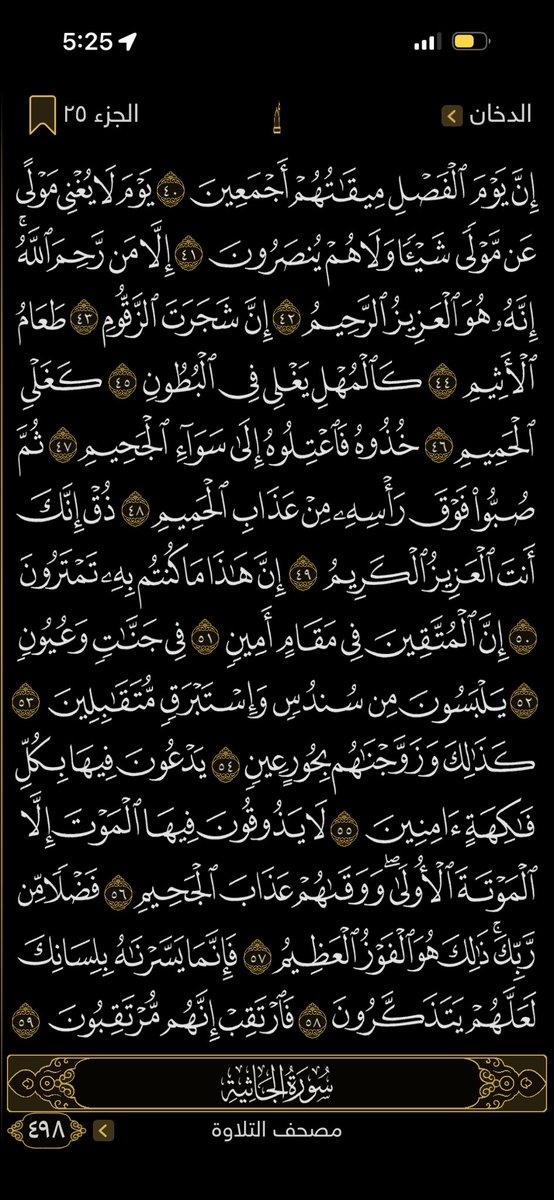 5:25
الدخان
الجزء ٢٥
إِنَّ يَوْمَ ٱلْفَصْلِ مِيقَـٰتُهُمْ أَجْمَعِينَ ٤٠ يَوْمَ لَا يُغْنِى مَوْلًى
عَن مَّوْلًى شَيْـًٔا وَلَا هُمْ يُنصَرُونَ ٤١ إِلَّا مَن رَّحِمَ ٱللَّهُ ۚ
إِنَّهُۥ هُوَ ٱلْعَزِيزُ ٱلرَّحِيمُ ٤٢ إِنَّ شَجَرَتَ ٱلزَّقُّومِ ٤٣ طَعَامُ
ٱلْأَثِيمِ ٤٤ كَٱلْمُهْلِ يَغْلِى فِى ٱلْبُطُونِ ٤٥ كَغَلْىِ
ٱلْحَمِيمِ ٤٦ خُذُوهُ فَٱعْتِلُوهُ إِلَىٰ سَوَآءِ ٱلْجَحِيمِ ٤٧ ثُمَّ
صُبُّوا۟ فَوْقَ رَأْسِهِۦ مِنْ عَذَابِ ٱلْحَمِيمِ ٤٨ ذُقْ إِنَّكَ
أَنتَ ٱلْعَزِيزُ ٱلْكَرِيمُ ٤٩ إِنَّ هَـٰذَا مَا كُنتُم بِهِۦ تَمْتَرُونَ
٥٠ إِنَّ ٱلْمُتَّقِينَ فِى مَقَامٍ أَمِينٍ ٥١ فِى جَنَّـٰتٍ وَعُيُونٍ
٥٢ يَلْبَسُونَ مِن سُندُسٍ وَإِسْتَبْرَقٍ مُّتَقَـٰبِلِينَ ٥٣
كَذَٰلِكَ وَزَوَّجْنَـٰهُم بِحُورٍ عِينٍ ٥٤ يَدْعُونَ فِيهَا بِكُلِّ
فَـٰكِهَةٍ ءَامِنِينَ ٥٥ لَا يَذُوقُونَ فِيهَا ٱلْمَوْتَ إِلَّا
ٱلْمَوْتَةَ ٱلْأُولَىٰ ۖ وَوَقَىٰهُمْ عَذَابَ ٱلْجَحِيمِ ٥٦ فَضْلًا مِّن
رَّبِّكَ ۚ ذَٰلِكَ هُوَ ٱلْفَوْزُ ٱلْعَظِيمُ ٥٧ فَإِنَّمَا يَسَّرْنَـٰهُ بِلِسَانِكَ
لَعَلَّهُمْ يَتَذَكَّرُونَ ٥٨ فَٱرْتَقِبْ إِنَّهُم مُّرْتَقِبُونَ ٥٩
سُورَةُ الجَاثِيَةِ
مصحف التلاوة
٤٩٨